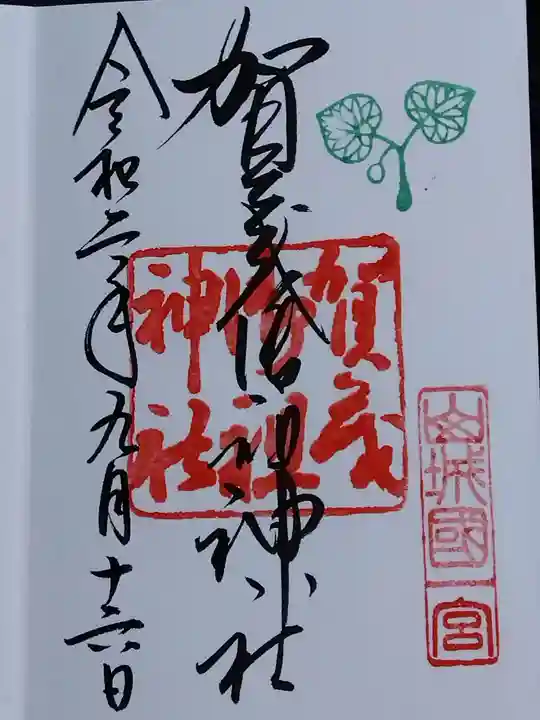 山城國一宮
賀茂御祖神社
賀茂御祖神社
令和二年九月十六日